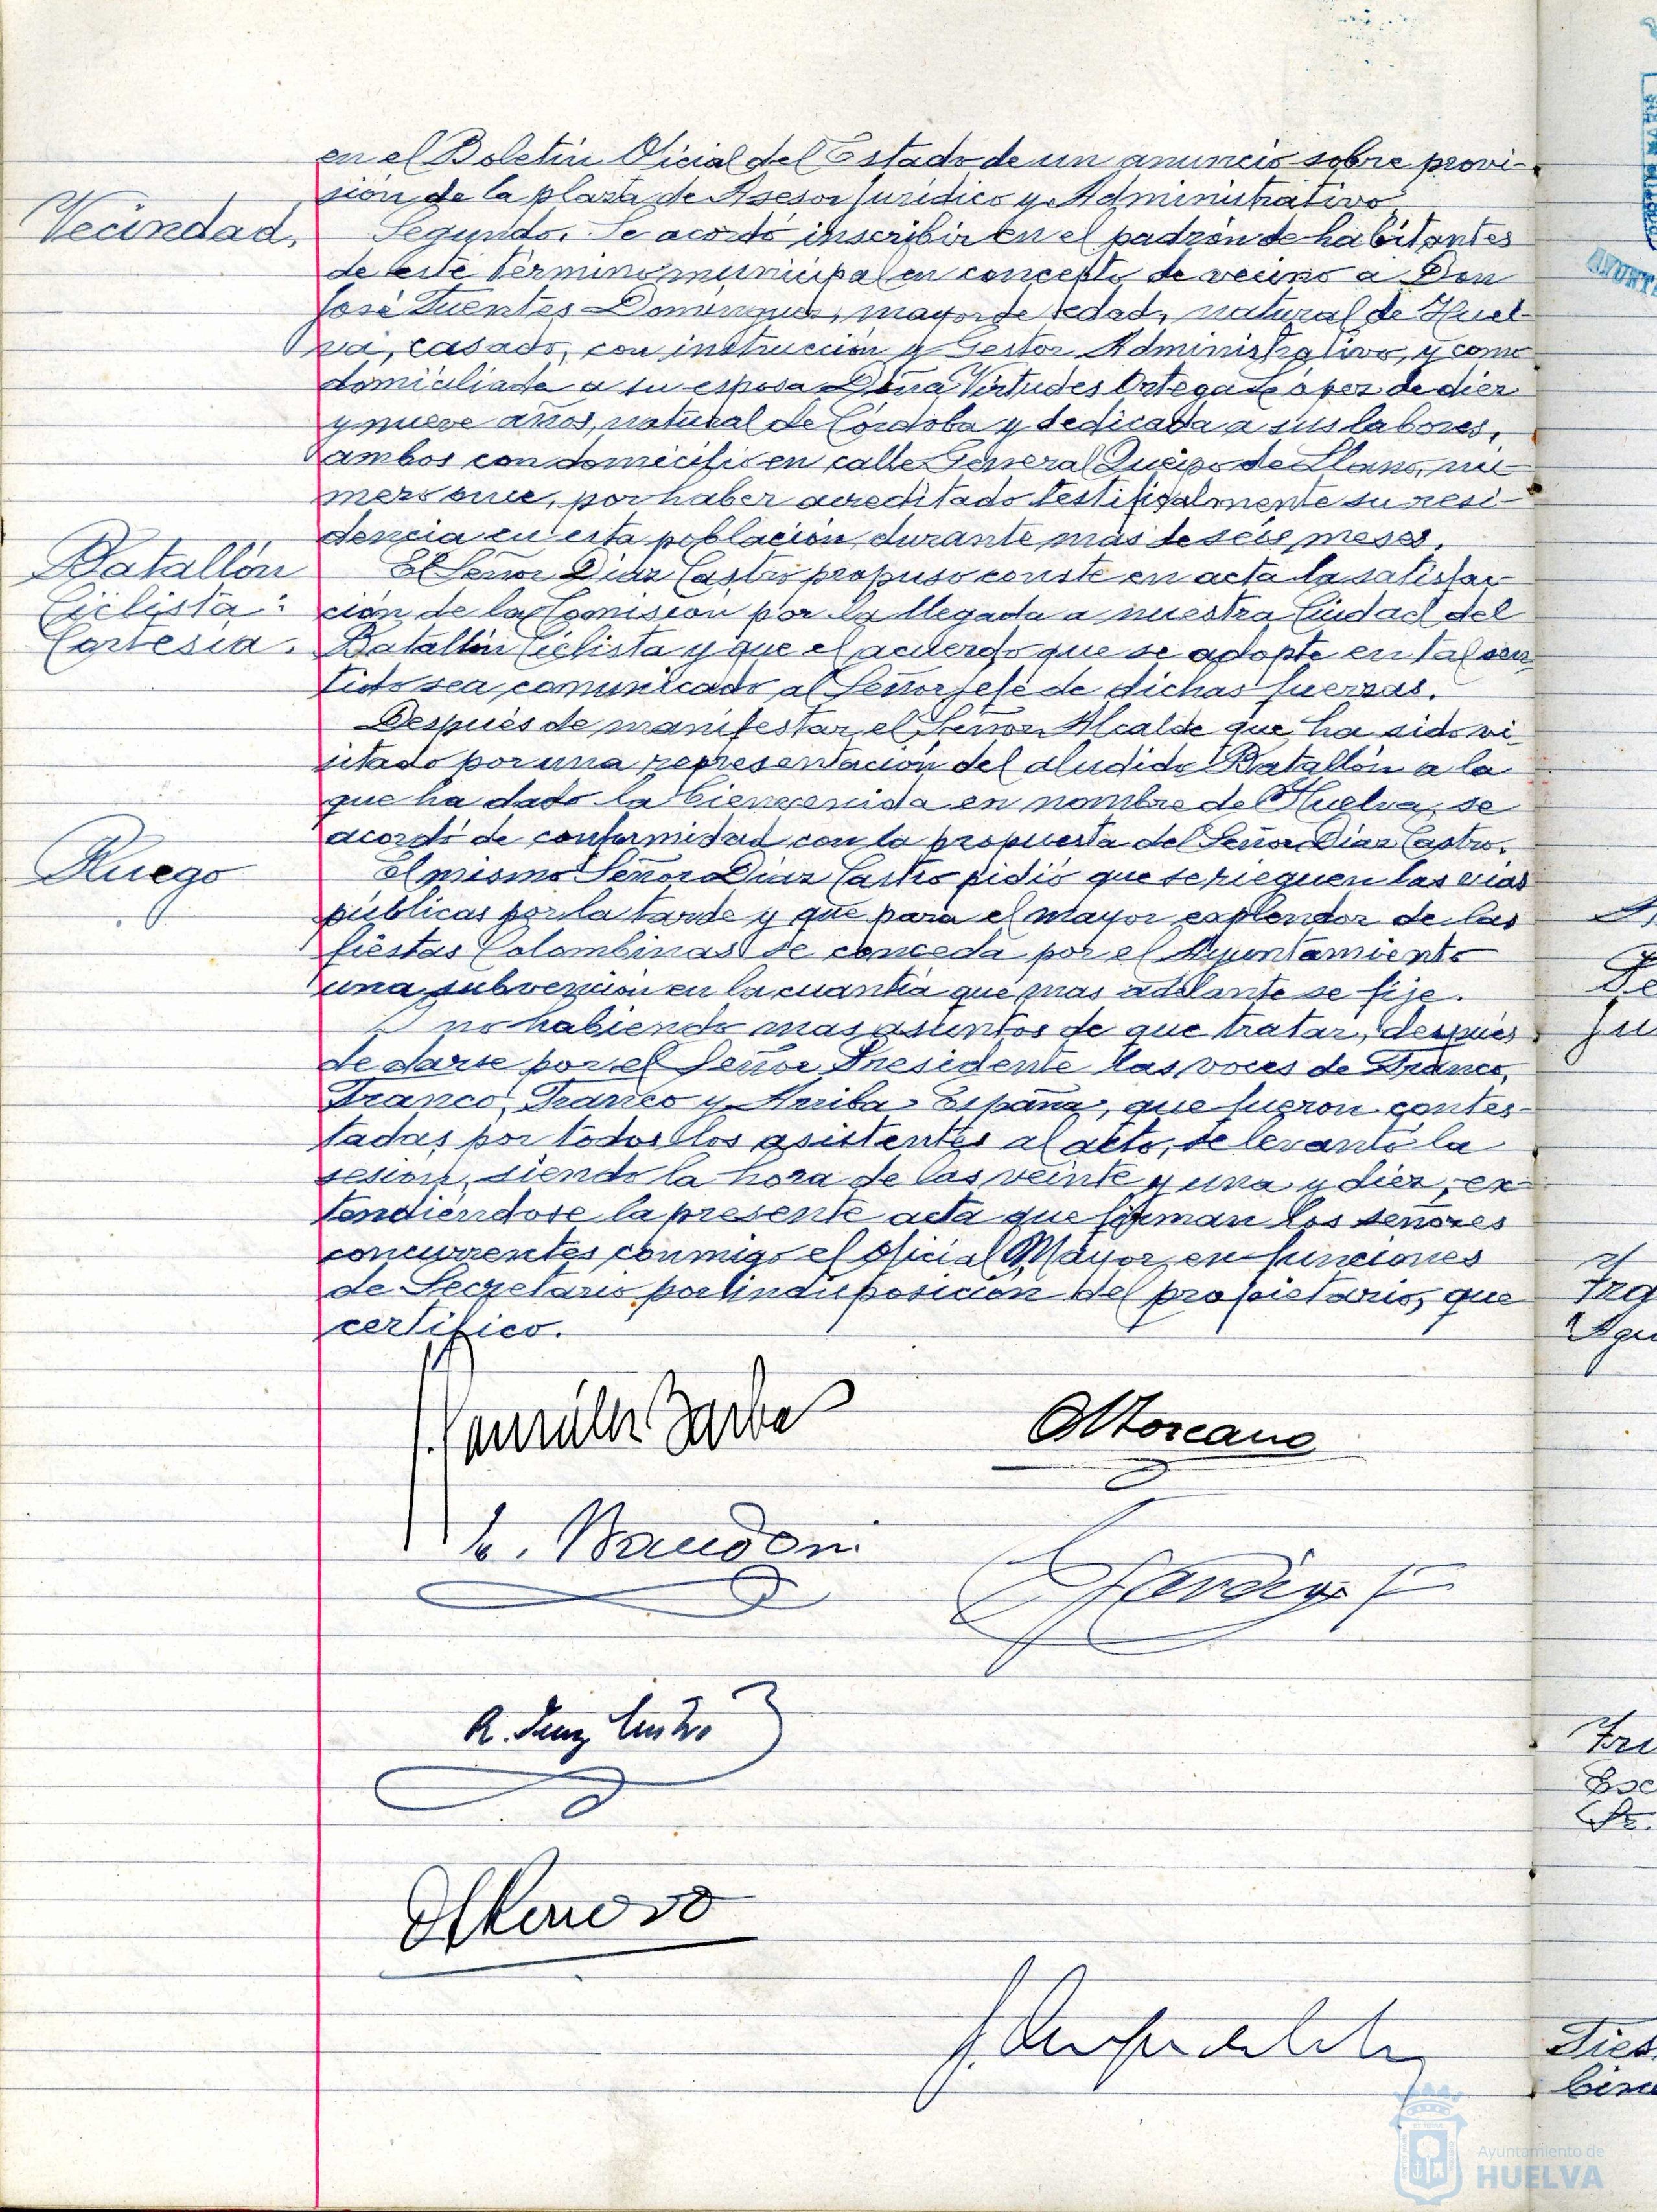 en el Boletín Oficial del Estado de un anuncio sobre provi-
sión de la plaza de Asesor Jurídico y Administrativo.
Vecindad.
Segundo. Se acordó inscribir en el padrón de habitantes
de este término municipal en concepto de vecino a Don
José Fuentes Dominguez, mayor de edad, natural de Huel-
va, casado, con instrucción y Gestor Administrativo, y como
domiciliada a su esposa Doña Virtudes Ortega López de diez
y nueve años, natural de Córdoba y dedicada a sus labores,
ambos con domicilio en calle General Queipo de Llano, nú-
mero once, por haber acreditado testificalmente su resi-
dencia en esta población durante mas de seis meses.
Batallón
Ciclista:
Cortesia.
El Señor Díaz Castro propuso conste en acta la satisfac-
ción de la Comisión por la llegada a nuestra Ciudad del
Batallón Ciclista y que el acuerdo que se adopte en tal sen-
tido sea comunicado al Señor Jefe de dichas fuerzas.
Después de manifestar el Señor Alcalde que ha sido vi-
sitado por una representación del aludido Batallón a la
que ha dado la bienvenida en nombre de Huelva, se
acordó de conformidad con la propuesta del Señor Díaz Castro.
Ruego
El mismo Señor Díaz Castro pidió que se rieguen las vias
públicas por la tarde y que para el mayor esplendor de las
fiestas Colombinas se conceda por el Ayuntamiento
una subvención en la cuantía que mas adelante se fije.
Y no habiendo mas asuntos de que tratar, después
de darse por el Señor Presidente las voces de Franco,
Franco, Franco y Arriba España, que fueron contes-
tadas por todos los asistentes al acto, se levantó la
sesión, siendo la hora de las veinte y una y diez, ex-
tendiéndose la presente acta que firman los señores
concurrentes conmigo el Oficial Mayor en funciones
de Secretario por indisposición del propietario, que
certifico.
J. González Barba
R. Díaz Castro
Ayuntamiento de
HUELVA